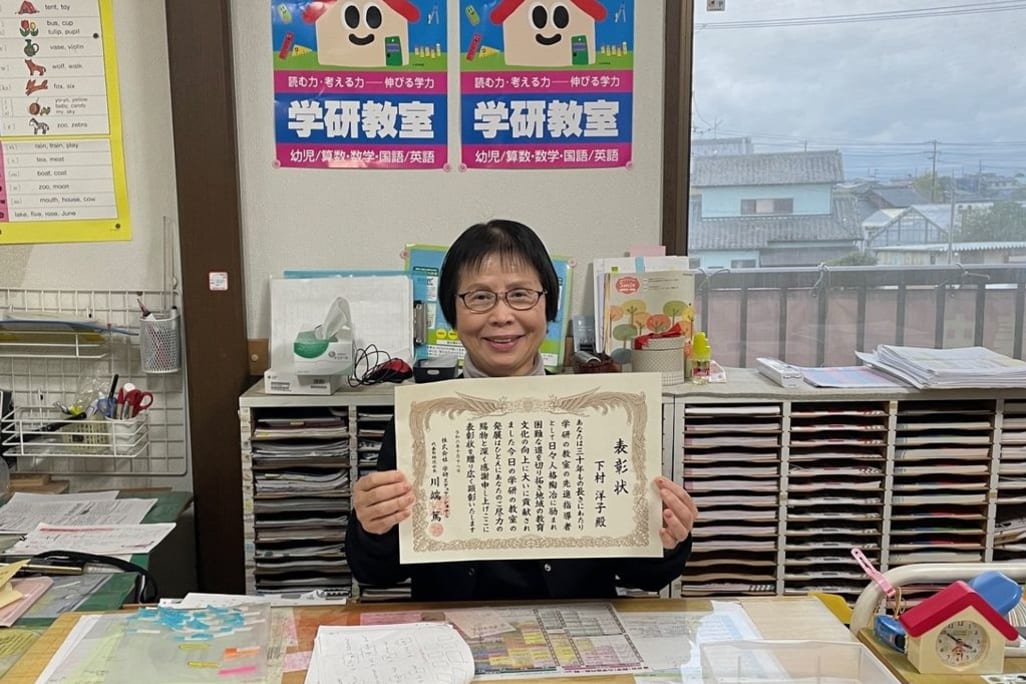 tent, toy
bus, cup
tulip, pupil
vase, violin
wolf, walk
fox, six
yo-yo, yellow
baby, candy
my, sky
zoo, zebra
rain, train, play
tea, meat
boat, coat
zoo, moon
mouth, house, cow
lake, five, rose, June
読む力・考える力──伸びる学力
学研教室
幼児/算数・数学・国語/英語
読む力・考える力──伸びる学力
学研教室
幼児/算数・数学・国語/英語
表彰状
下村 洋子 殿
あなたは三十年もの長きにわたり
学研の教室の先進指導者
として日々人格陶冶に励まれ
困難な道を切り拓き地域の教育
文化の向上に大いに貢献され
ました今日の学研の教室の
発展はひとえにあなたのご尽力の
賜物と深く感謝申し上げここに
表彰状を贈り広く顕彰いたします
株式会社 学研
川端 篤